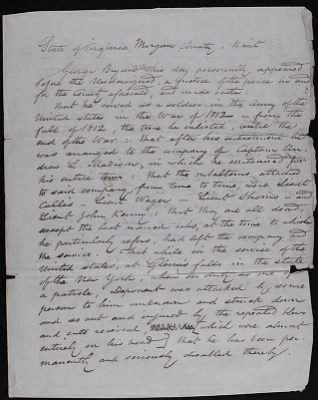 State of Virginia Morgan County, to wit.
George Bryant this day personally appeared
before the undersigned, a Justice of the peace in and
for the County aforesaid, and made oath:
that he served as a soldier in the Army of the
United States in the War of 1812 – from the
fall of 1812, the time he enlisted, until the
end of the War.: that after his enlistment he
was assigned to the company of Captain
L. Madison, in which he continued for
his entire term: that the subalterns, attached
to said company, from time to time, were Lieut
Lieut – Lieut – and
Lieut John Kenny: that they are all dead,
except the last named who, at the time to which
he particularly refers, had left the company and
the service: that while in the service of the
United States, at falls in the state
of New York, when on duty as one of
a patrole, Deponent was attacked by some
person to him unknown and struck down
and so cut and injured by the repeated blows
and cuts received [ which were almost
entirely on his head] that he has been per-
manently and seriously disabled thereby.